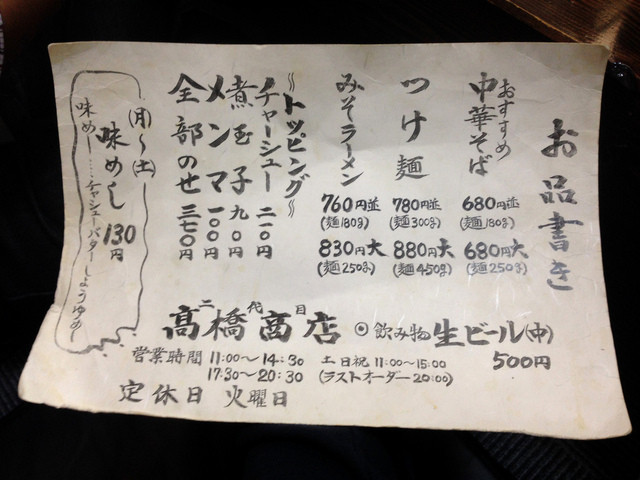 お品書き
おすすめ
中華そば
680円並
(麺180g)
680円大
(麺250g)
つけ麺
780円並
(麺300g)
880円大
(麺450g)
みそラーメン
760円並
(麺180g)
830円大
(麺250g)
〜トッピング〜
チャーシュー 二一〇円
煮玉子 九〇円
メンマ 一〇〇円
全部のせ 三七〇円
(月)〜(土)
味めし 130円
味めし……チャシューバターしょうゆめし
二代目
髙橋商店
◎飲み物 生ビール(中)
500円
営業時間 11:00〜14:30 土日祝 11:00〜15:00
17:30〜20:30 (ラストオーダー20:00)
定休日 火曜日